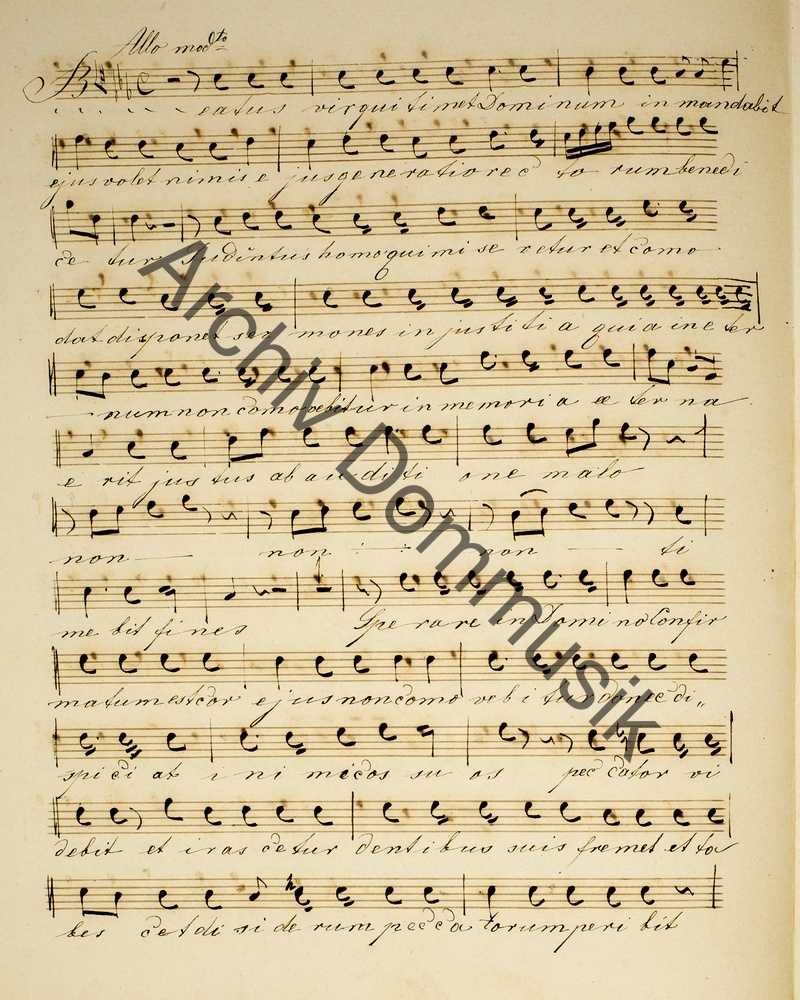 Allo modto
B eatus vir qui timet Dominum in mandabit
ejus volet nimis e jus generatio rec to rum benedi
ce tur Judintus homo qui mi se retur et como
dat disponet ser mones in justi ti a quia in e ter
num non como vebitur in memori a e ter na
e rit jus tus ab au di ti one malo
non non non ti
me bit fi nes Spe rare in Domi no Confir
matum est cor ejus non como veb i tur donec di„
spi ci at i ni micos su os pec cator vi
debit et iras cetur dentibus suis fremet et ta
bes cet di si de rum pecca torum peri bit
Archiv Dommusik